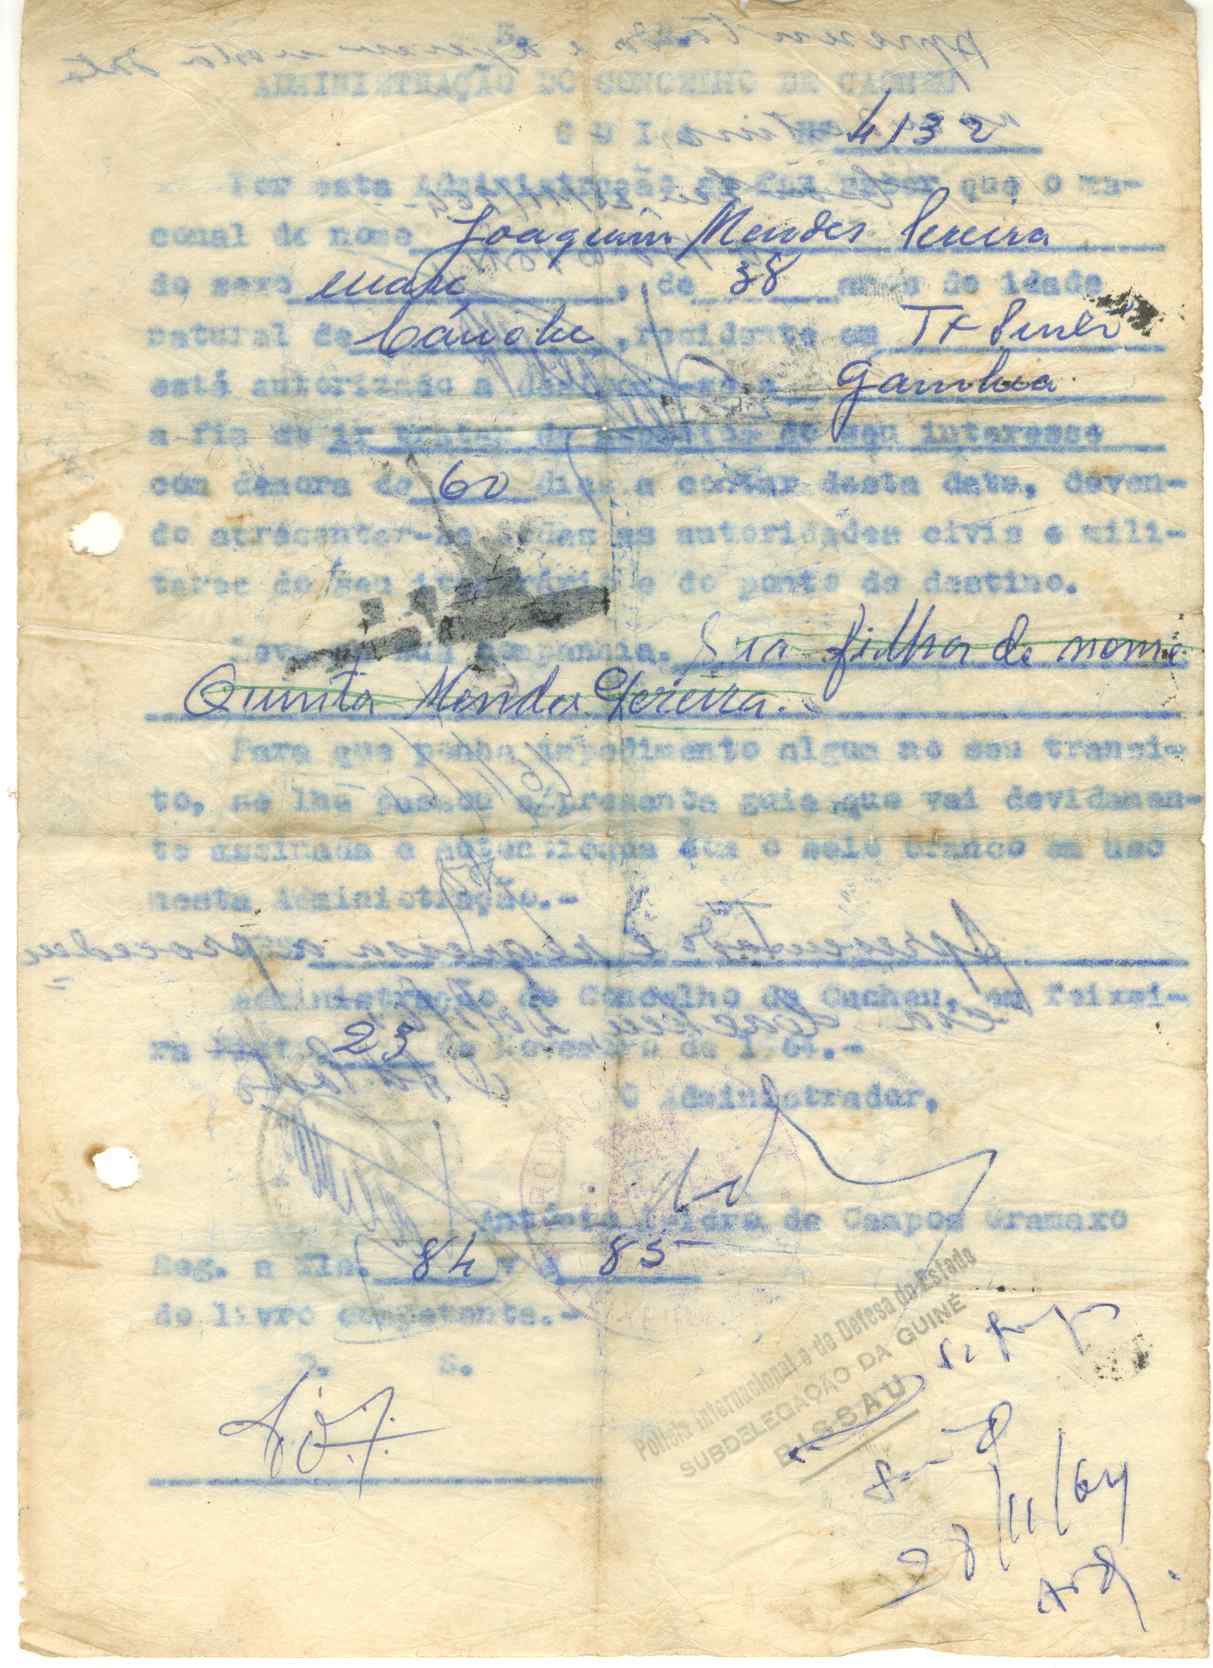 S. R.
ADMINISTRAÇÃO DO CONCELHO DE CACHEU
G U I A Nº 4132
Por esta Administração se faz saber que o na-
cional de nome Joaquim Mendes Pereira
do sexo masc , de 38 anos de idade
natural de Canobe , residente em T. Pinto
está autorizado a deslocar-se a Gambia
a fim de ir tratar de assuntos do seu interesse
com demora de 60 dias a contar desta data, deven-
do apresentar-se todas as autoridades civis e mili-
tares do seu itenerário e do ponto de destino.
Leva em sua companhia. Sua filha de nome
Quinta Mendes Pereira.
Para que ponha impedimento algum ao seu transi-
to, se lhe passou a presente guia que vai devidamen-
te assinada e autenticada com o selo branco em uso
nesta Administração.-
Administração do Concelho de Cacheu, em Teixei-
ra Pinto, 23 de Novembro de 1964.-
O Administrador,
António Isidro de Campos Gramaxo
Reg. a fls. 84 v e 85
do livro competente.-
Policia Internacional e de Defesa do Estado
SUBDELEGAÇÃO DA GUINÉ
BISSAU
28/11/64